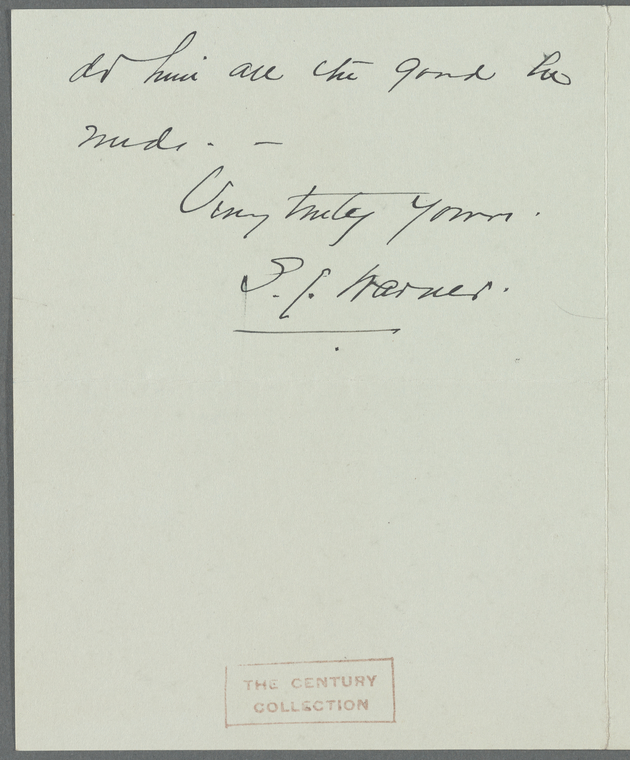 do him all the good he
needs. –
Very truly yours.
S. J. Warner.
THE CENTURY
COLLECTION